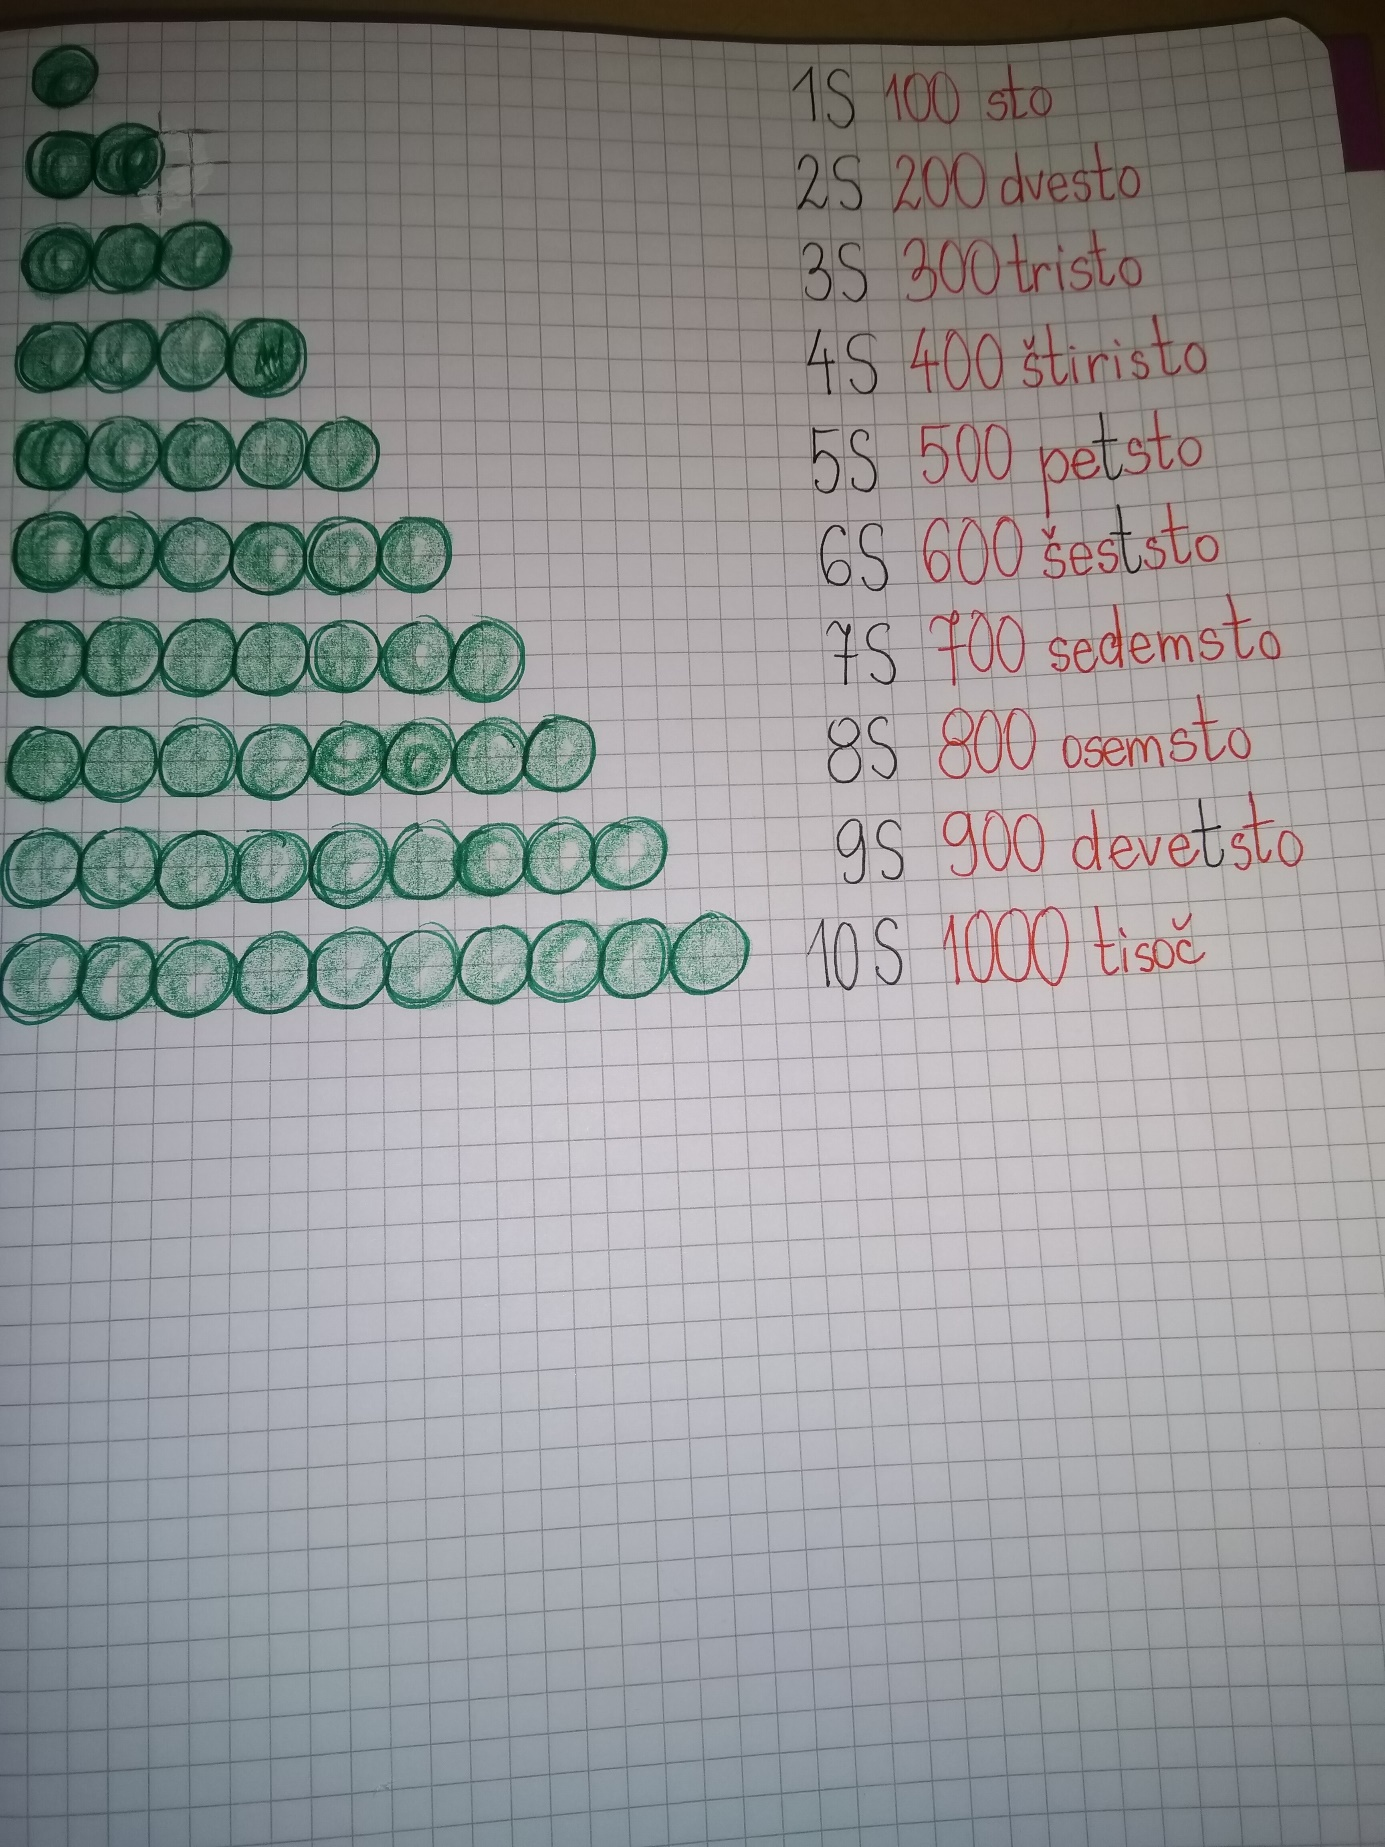 1S 100 sto
2S 200 dvesto
3S 300 tristo
4S 400 štiristo
5S 500 petsto
6S 600 šeststo
7S 700 sedemsto
8S 800 osemsto
9S 900 devetsto
10S 1000 tisoč